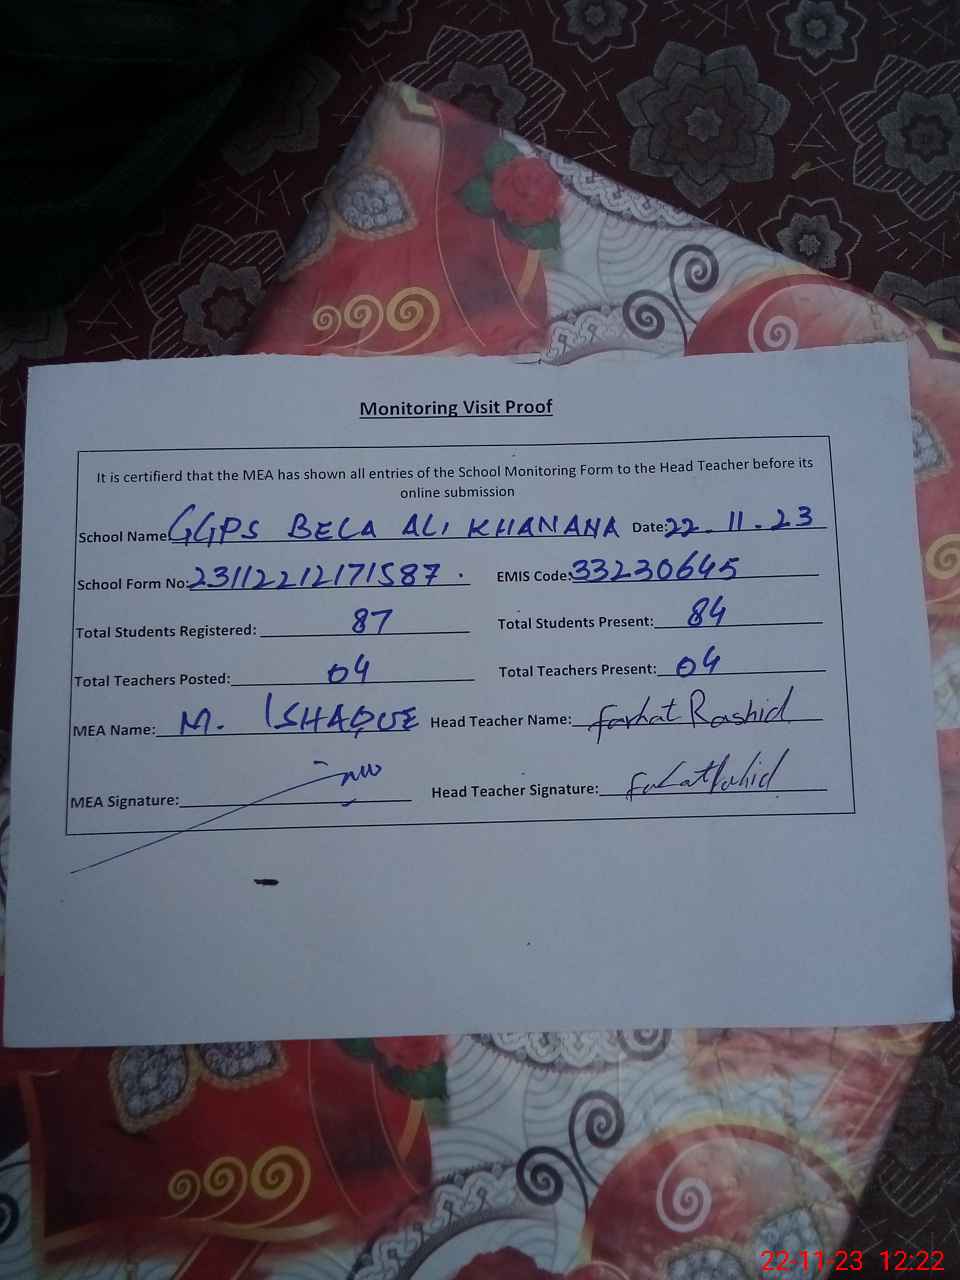 Monitoring Visit Proof
It is certifierd that the MEA has shown all entries of the School Monitoring Form to the Head Teacher before its
online submission
School Name: GGPS BELA ALI KHANANA Date: 22.11.23
School Form No: 23112212171587. EMIS Code: 33230645
Total Students Registered: 87 Total Students Present: 84
Total Teachers Posted: 04 Total Teachers Present: 04
MEA Name: M. ISHAQUE Head Teacher Name: Farhat Rashid
MEA Signature: Head Teacher Signature:
22-11-23 12:22